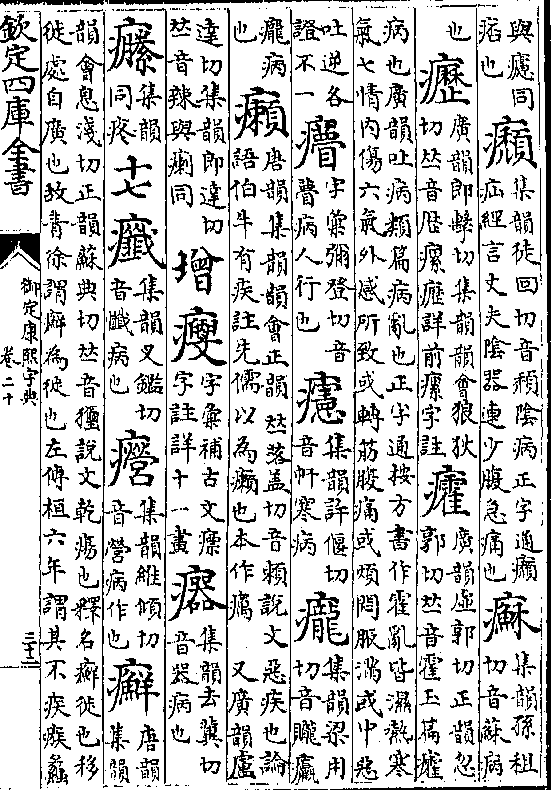 欽定四庫全書
御定康熙字典
卷二十
與同
也
㿗集韻徒回切音頹陰病正字通㿗
疝經言丈夫陰器連少腹急痛也
集韻孫祖
切音蘇病
也
癧廣韻郎擊切集韻韻會狼狄
切𠀤音歷瘰癧詳前瘰字註
癨廣韻虛郭切正韻忽
郭切𠀤音霍玉篇癨
病也廣韻吐病類篇病亂也正字通按方書作霍亂皆濕熱寒
氣七情內傷六氣外感所致或轉筋腹痛或煩悶脹滿或中惡
吐逆各
證不一
字彙彌登切音
瞢病人行也
集韻許偃切
音幰寒病
㿖集韻梁用
切音朧
癃病
也
癩唐韻集韻韻會正韻𠀤落蓋切音賴說文惡疾也論
語伯牛有疾註先儒以為癩也本作癘 又廣韻盧
達切集韻郎達切
𠀤音辣與瘌同
增
字彙補古文瘭
字註詳十一畫
集韻去冀切
音器病也
集韻
同疼
十七
集韻叉鑑切
音懺病也
集韻維傾切
音營病作也
癬唐韻
集韻
韻會息淺切正韻蘇典切𠀤音獮說文乾瘍也釋名癬徙也移
徙處自廣也故青徐謂癬為徙也左傳桓六年謂其不疾瘯蠡